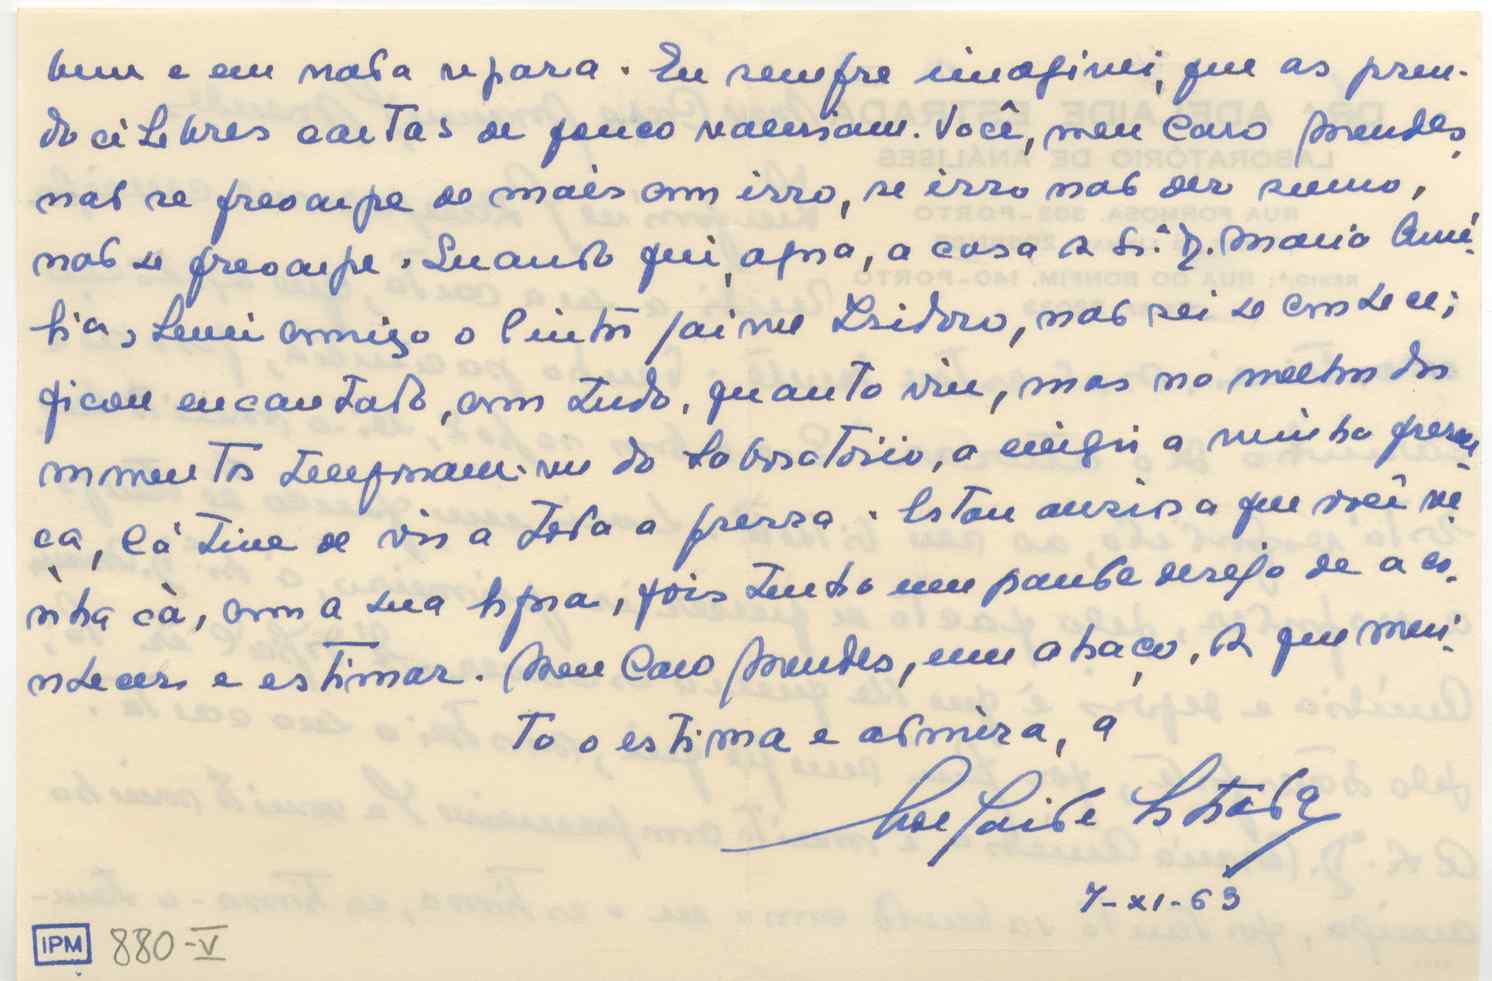 bem e em nada repara. Eu sempre imaginei, que as pseu-
do célebres cartas de pouco valeriam. Você, meu Caro Mendes,
não se preocupe de mais com isso, se isso não der sumo,
não se preocupe. Quando fui, agora, a casa da Sr.ª D. Maria Amé-
lia, levei comigo o Pintor Jaime Isidoro, não sei se conhece;
ficou encantado, com tudo, quanto viu, mas no melhor dos
momentos telefonaram-me do Laboratório, a exigir a minha presen-
ça, lá tive de vir a toda a pressa. Estou ansiosa que você ve-
nha cá, com a sua Esposa, pois tenho um grande desejo de a co-
nhecer e estimar. Meu Caro Mendes, um abraço, da que mui-
to o estima e admira, a
Adelaide Estrada
7-XI-63
IPM 880-V